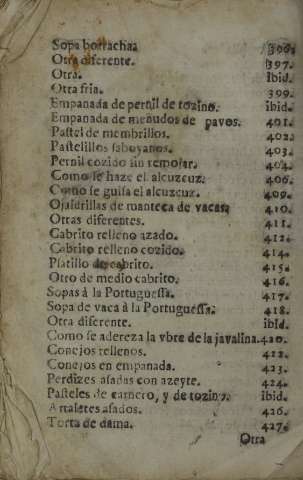 Sopa borracha. 396.
Otra diferente. 397.
Otra. ibid.
Otra fria. 399.
Empanada de pernil de tozino. ibid.
Empanada de menudos de pavos. 401.
Pastel de membrillos. 402.
Pastelillos saboyanos. 403.
Pernil cozido sin remojar. 404.
Como se haze el alcuzcuz. 406.
Como se guisa el alcuzcuz. 409.
Ojaldrillas de manteca de vacas. 410.
Otras diferentes. 411.
Cabrito relleno azado. 412.
Cabrito relleno cozido. 414.
Platillo de cabrito. 415.
Otro de medio cabrito. 416.
Sopas à la Portuguessa. 417.
Sopa de vaca à la Portuguessa. 418.
Otra diferente. ibid.
Como se adereza la vbre de la javalina. 420.
Conejos rellenos. 422.
Conejos en empanada. 423.
Perdizes asadas con azeyte. 424.
Pasteles de carnero, y de tozino. ibid.
Artaletes asados. 426.
Torta de dama. 427.
Otra